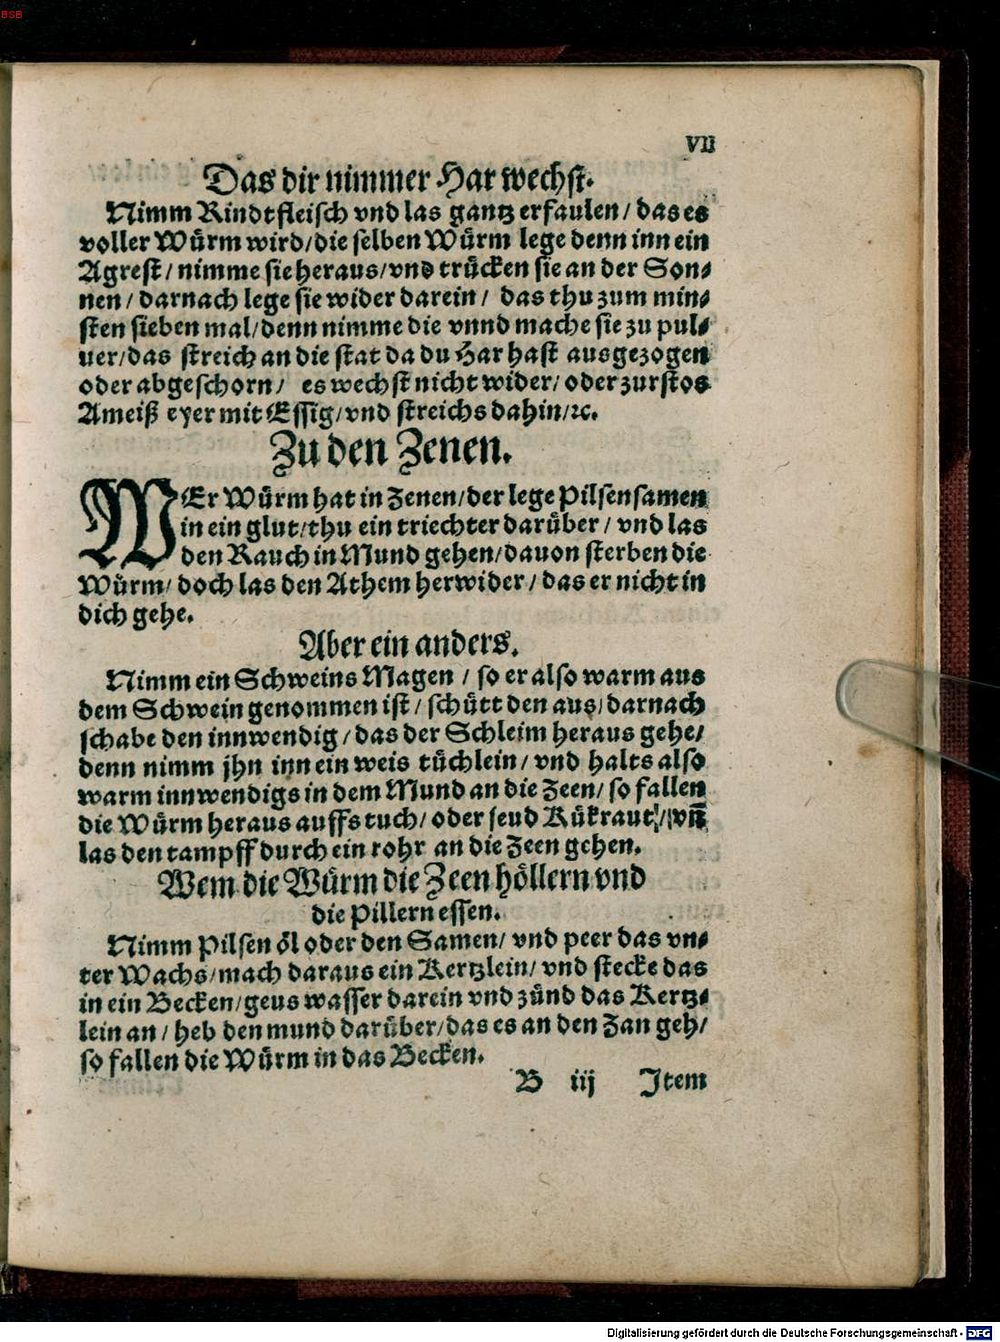 BSB
VII
Das dir nimmer Har wechst.
Nimm Rindtfleisch vnd las gantz erfaulen / das es
voller Würm wird/die selben Würm lege denn inn ein
Agrest / nimme sie heraus/vnd trücken sie an der Son⸗
nen / darnach lege sie wider darein / das thu zum min⸗
sten sieben mal/denn nimme die vnnd mache sie zu pul⸗
uer/das streich an die stat da du Har hast ausgezogen
oder abgeschorn / es wechst nicht wider/ oder zurstos
Ameiß eyer mit Essig/vnd streichs dahin/ꝛc.
Zu den Zenen.
WEr Würm hat in Zenen/der lege Pilsensamen
in ein glut/thu ein triechter darüber / vnd las
den Rauch in Mund gehen/dauon sterben die
Würm/ doch las den Athem herwider / das er nicht in
dich gehe.
Aber ein anders.
Nimm ein Schweins Magen / so er also warm aus
dem Schwein genommen ist / schütt den aus/darnach
schabe den innwendig / das der Schleim heraus gehe/
denn nimm jhn inn ein weis tüchlein / vnd halts also
warm innwendigs in dem Mund an die Zeen/ so fallen
die Würm heraus auffs tuch/ oder seud Rükraut/ vñ
las den tampff durch ein rohr an die Zeen gehen.
Wem die Würm die Zeen höllern vnd
die Pillern essen.
Nimm Pilsen öl oder den Samen/ vnd peer das vn⸗
ter Wachs/mach daraus ein Kertzlein/ vnd stecke das
in ein Becken/geus wasser darein vnd zünd das Kertz⸗
lein an / heb den mund darüber/das es an den Zan geh/
so fallen die Würm in das Becken.
B iij Item
Digitalisierung gefördert durch die Deutsche Forschungsgemeinschaft - DFG